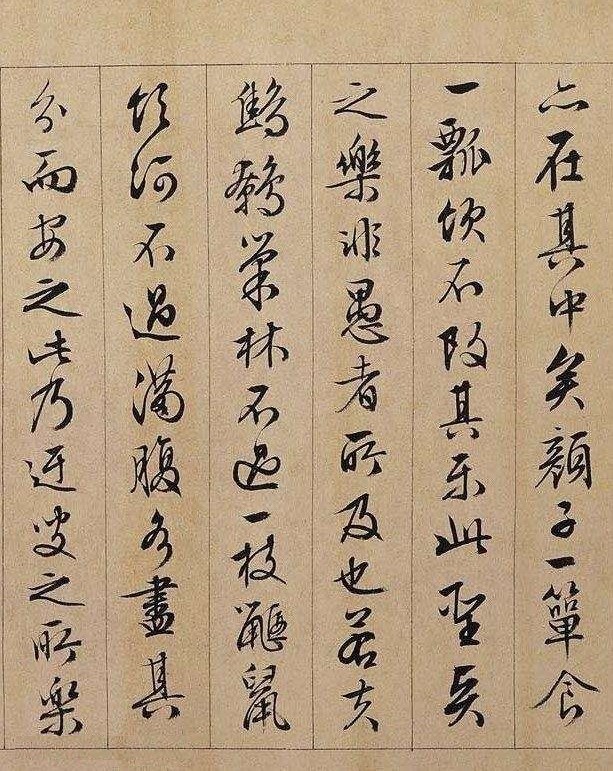 亦在其中矣顏子一簞食
一瓢飲不改其樂此聖賢
之樂非愚者所及也若夫
鷦鷯巢林不過一枝鼴鼠
飲河不過滿腹各盡其
分而安之此乃迂叟之所樂